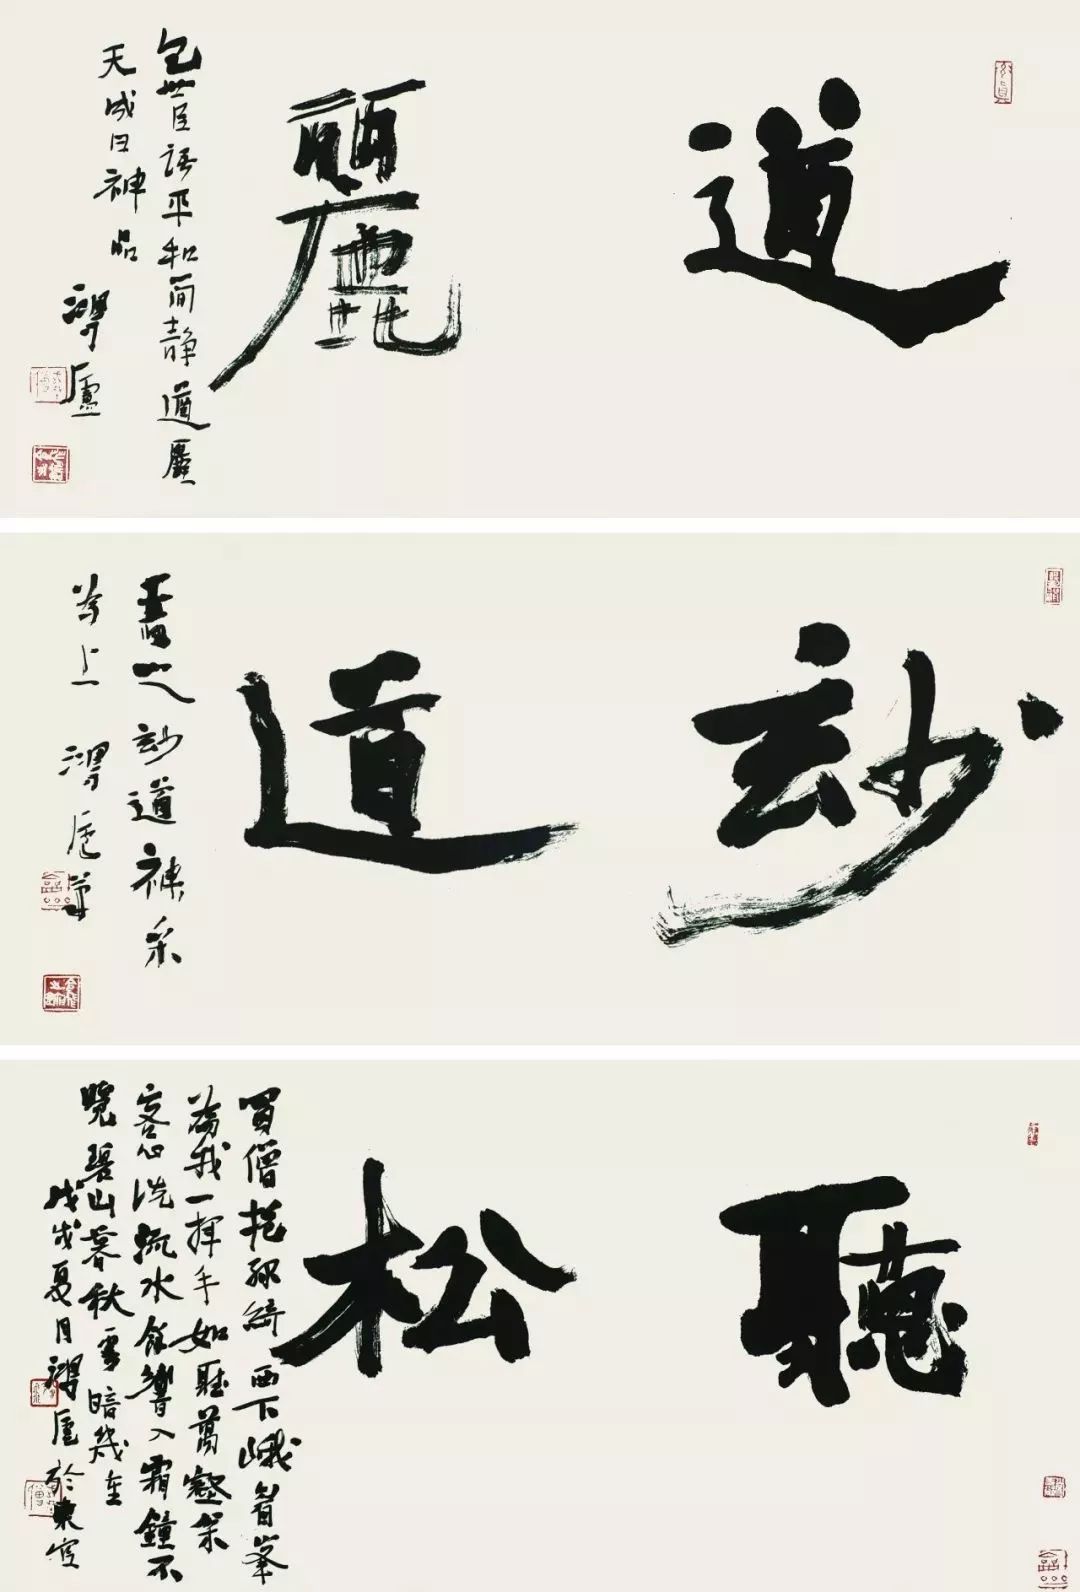 遒麗
包世臣語平和簡静遒麗
天成曰神品
玅道
書之玅道神采
為上
聽松
蜀僧抱綠綺西下峨眉峯
為我一揮手如聽萬壑松
客心洗流水餘響入霜鐘不
覺碧山暮秋雲暗幾重
戊戌夏月